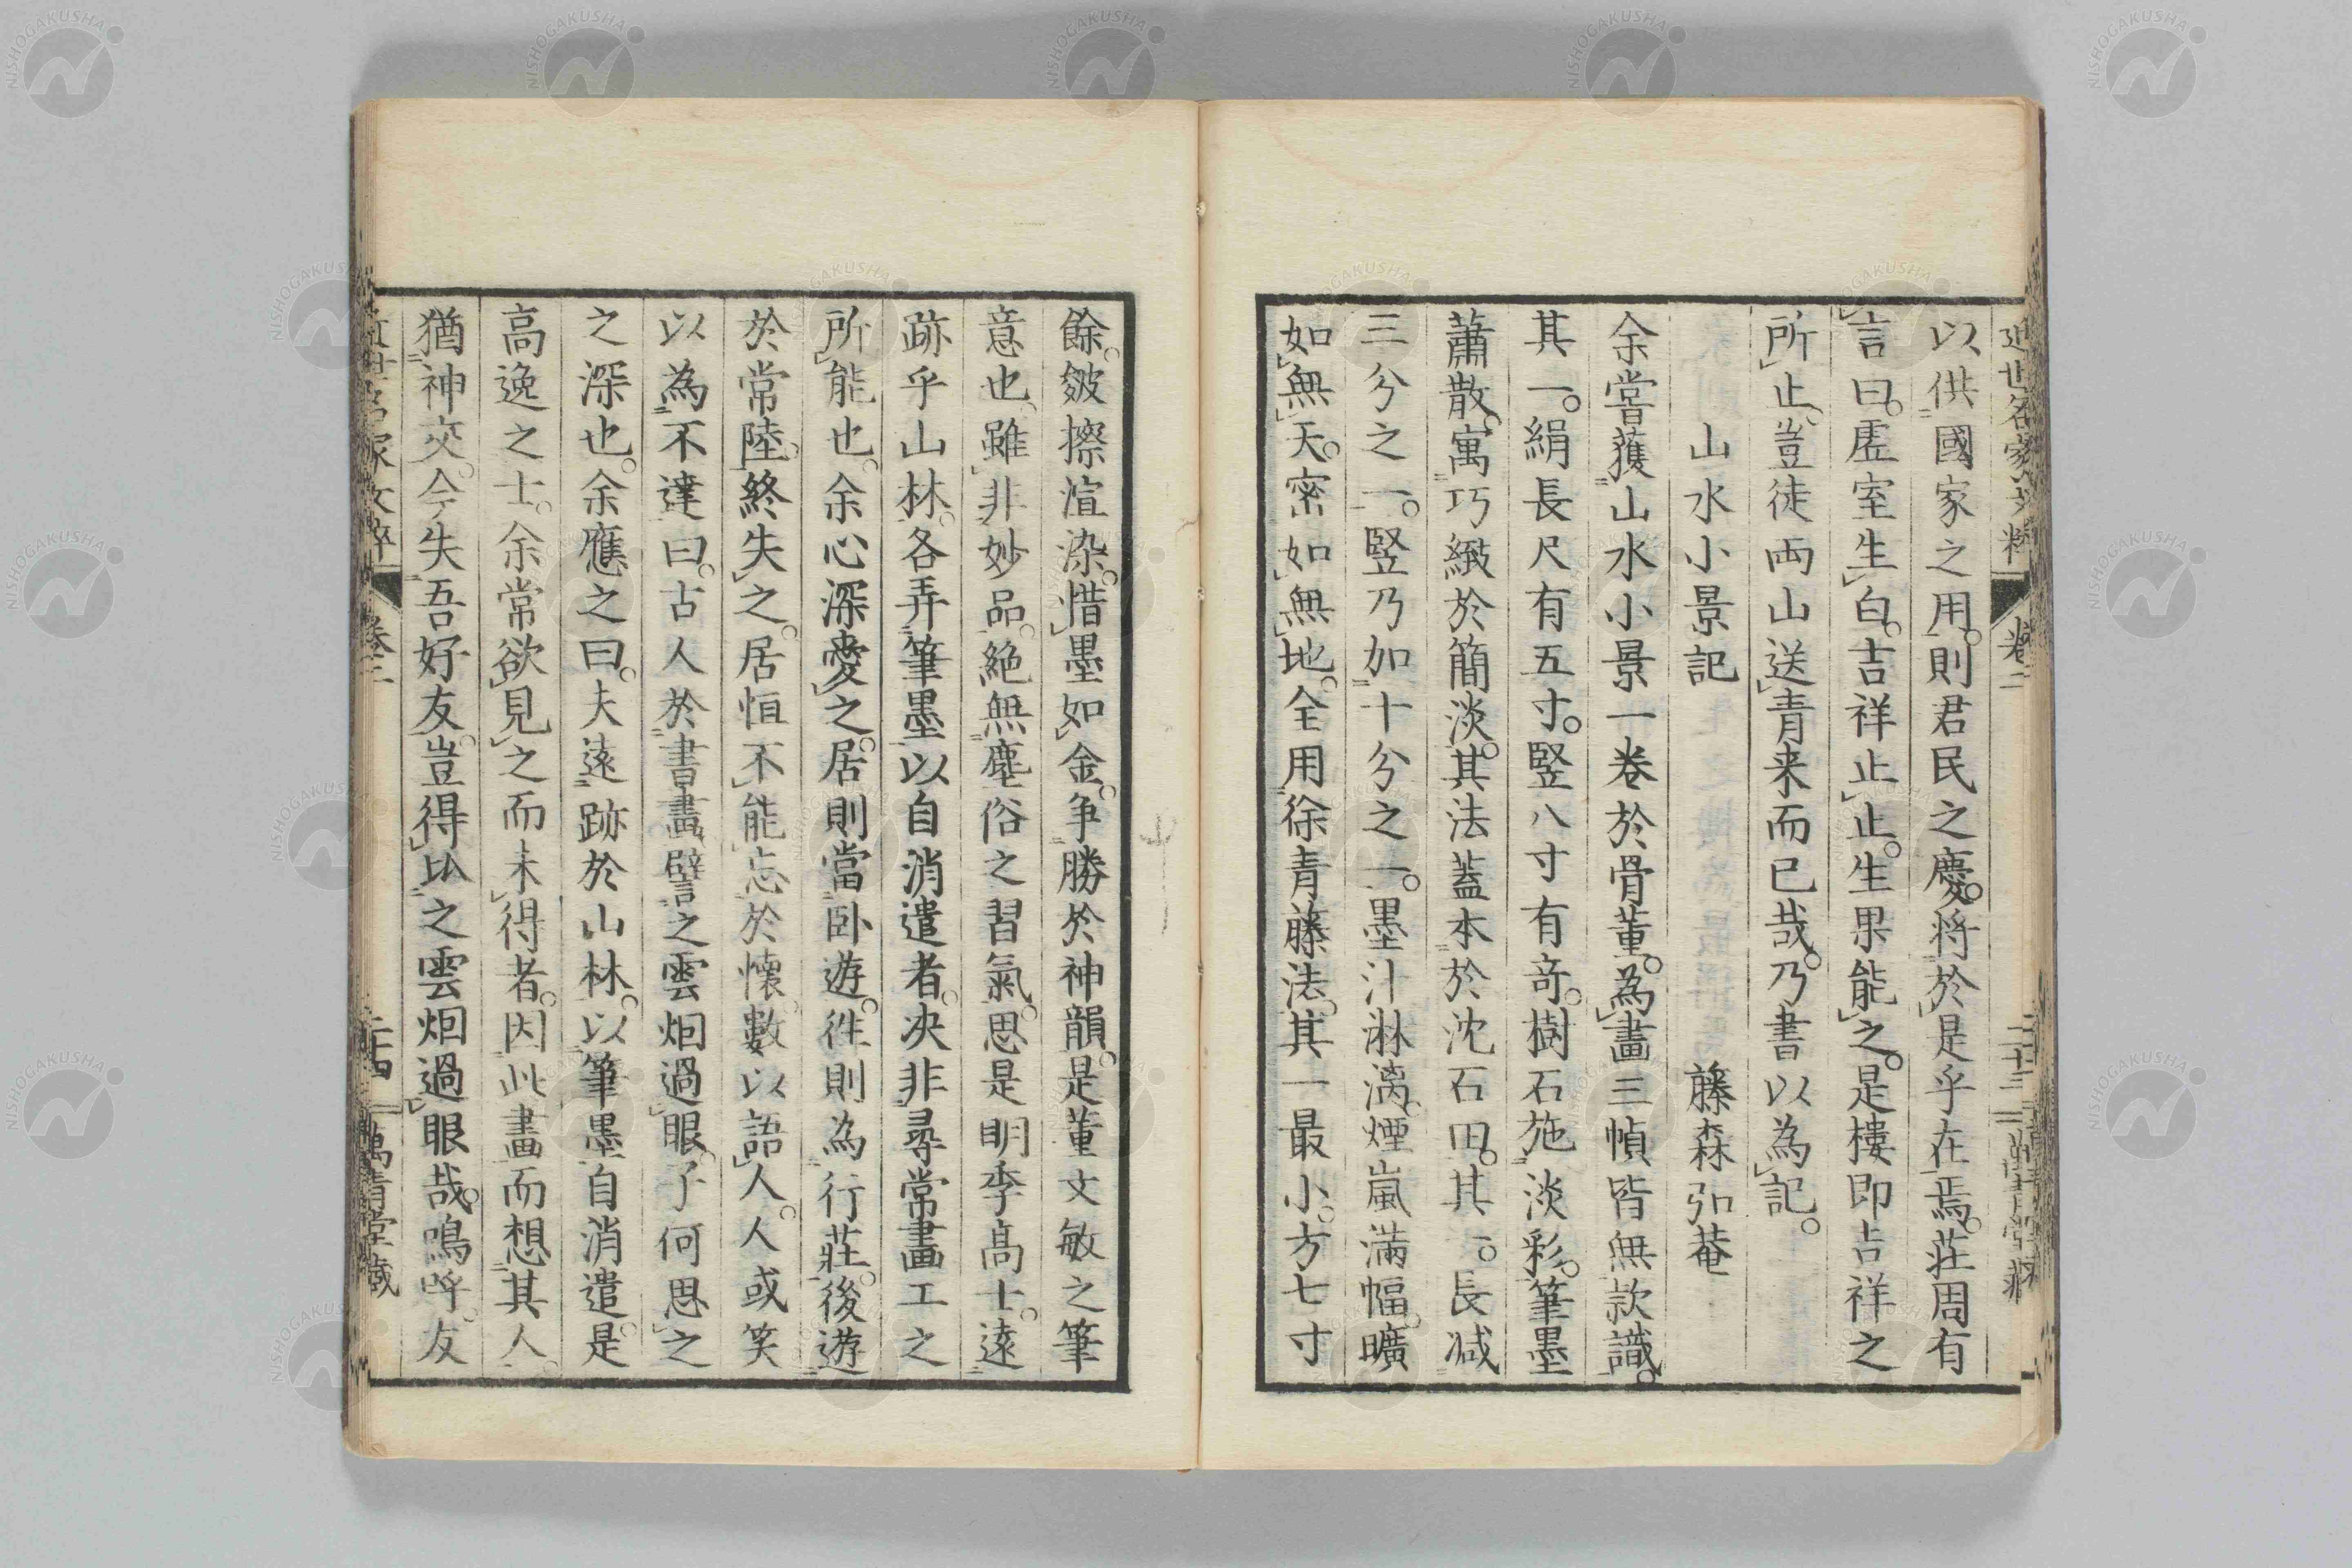 近世名家文粹 卷二 二十三 萬青堂藏
以供國家之用。則君民之慶。將於是乎在焉。莊周有
言曰。虛室生白。吉祥止止。生果能之。是樓即吉祥之
所止。豈徒両山送青来而已哉。乃書以為記。
山水小景記 藤森弘菴
余嘗獲山水小景一巻於骨董。為畫三幀皆無款識。
其一。絹長尺有五寸。竪八寸有奇。樹石施淡彩。筆墨
蕭散。寓巧緻於簡淡。其法蓋本於沈石田。其一。長減
三分之一。竪乃如十分之一。墨汁淋漓。煙嵐滿幅。曠
如無天。密如無地。全用徐青藤法。其一最小。方七寸
餘。皴擦渲染。惜墨如金。争勝於神韻。是董文敏之筆
意也。雖非妙品。絕無塵俗之習氣。思是明季高士。遠
跡乎山林。各弄筆墨以自消遣者。决非尋常畫工之
所能也。余心深愛之。居則當卧遊。徃則為行莊。後遊
於常陸。終失之。居恒不能忘於懷。數以語人。人或笑
以為不達曰。古人於書畫。譬之雲烟過眼。子何思之
之深也。余應之曰。夫遠跡於山林。以筆墨自消遣。是
高逸之士。余常欲見之而未得者。因此畫而想其人。
猶神交。今失吾好友。豈得以之雲烟過眼哉。嗚呼。友
近世名家文粹 卷二 二十四 萬青堂藏